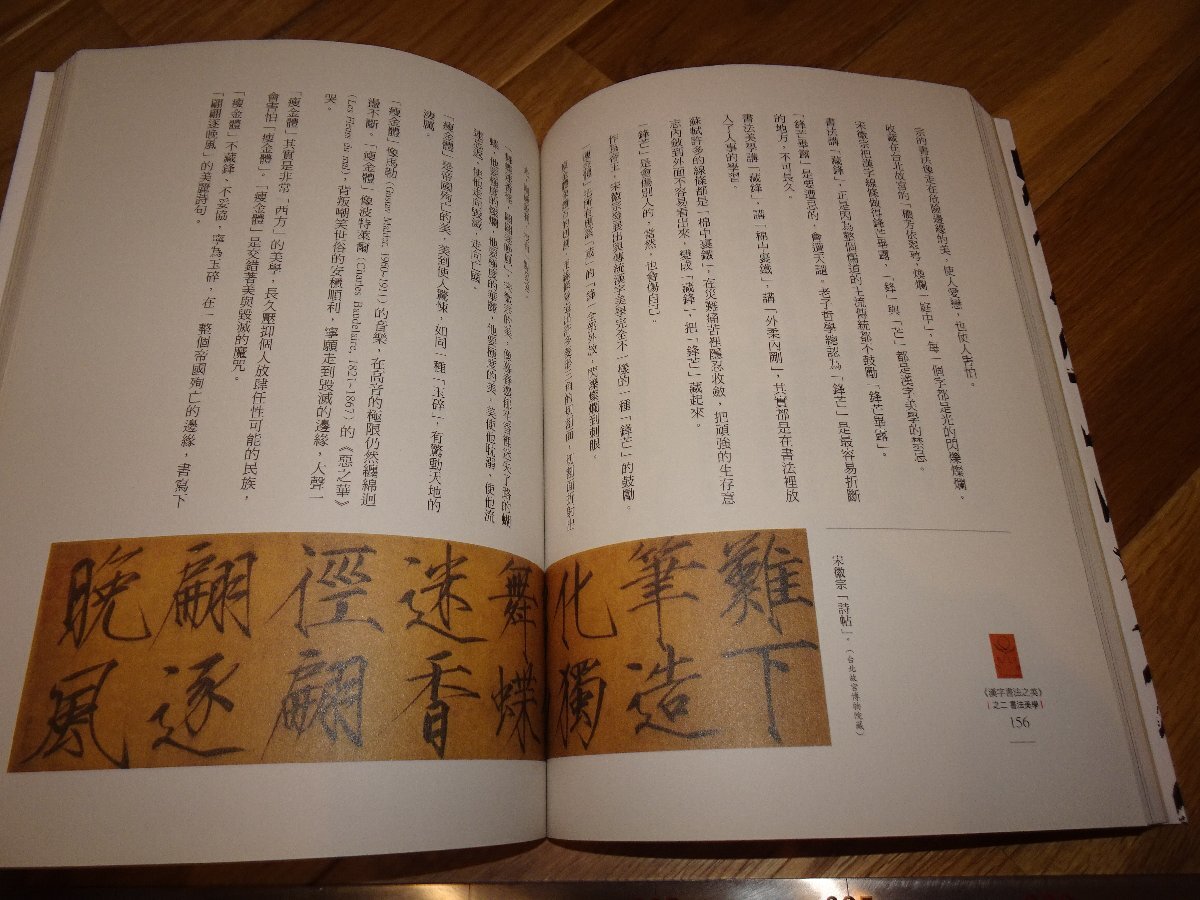 宗的書法像走在危險邊緣的美，使人愛戀，也使人害怕。
收藏在台北故宮的「穠芳依翠萼，煥爛一庭中」，每一個字都是光的閃爍燦爛。
宋徽宗把漢字線條做得鋒芒畢露，「鋒」與「芒」都是漢字美學的禁忌。
書法講「藏鋒」，正是因為整個儒道的主流傳統都不鼓勵「鋒芒畢露」。
「鋒芒畢露」是要遭忌的，會遭天譴。老子哲學總認為「鋒芒」是最容易折斷
的地方，不可長久。
書法美學講「藏鋒」，講「綿山裹鐵」，講「外柔內剛」，其實都是在書法裡放
入了人事的學習。
蘇軾許多的線條都是「棉中裹鐵」，在災難痛苦裡隱忍收斂，把頑強的生存意
志內斂到外面不容易看出來，變成「藏鋒」，把「鋒芒」藏起來。
「鋒芒」是會傷別人的，當然，也會傷自己。
作為帝王，宋徽宗發展出與傳統漢字美學完全不一樣的一種「鋒芒」的鼓勵。
淒厲。
「瘦金體」是帝國死亡的美，美到使人驚悚，如同一種「玉碎」，有驚動天地的
「瘦金體」像馬勒(Gustav Mahler, 1860-1911)的音樂，在高音的極限仍然纏綿迴
盪不斷。「瘦金體」像波特萊爾(Charles Baudelaire, 1821-1867)的《惡之華》
(Les Fleurs du mal)，背叛嘲笑世俗的安穩順利，寧願走到毀滅的邊緣，大聲一
哭。
「瘦金體」其實是非常「西方」的美學，長久壓抑個人放肆任性可能的民族，
會害怕「瘦金體」，「瘦金體」是交錯著美與毀滅的魔咒。
「瘦金體」不藏鋒、不妥協，寧為玉碎，在一整個帝國殉亡的邊緣，書寫下
「翩翩逐晚風」的美麗詩句。
難下
筆造
化獨
舞蝶
迷香
徑翩
翩逐
晚風
宋徽宗「詩帖」。（台北故宮博物院藏）
《漢字書法之美》
之二 書法美學
156